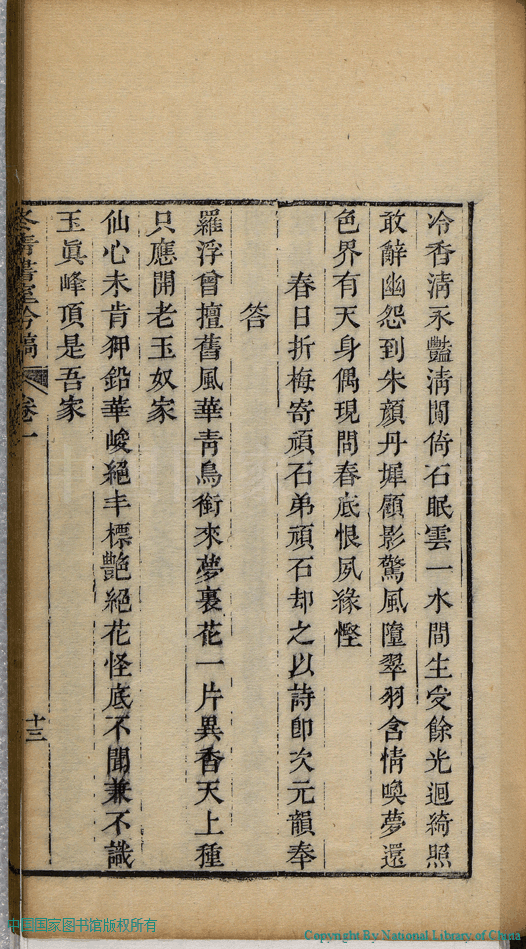 冷香清永豔清閒倚石眠雲一水間生受餘光迴綺照
敢辭幽怨到朱顏丹墀顧影驚風墮翠羽含情喚夢還
色界有天身偶現問春底恨夙緣慳
春日折梅寄頑石弟頑石却之以詩卽次元韻奉
答
羅浮曾擅舊風華靑鳥銜來夢裏花一片異香天上種
只應開老玉奴家
仙心未肯狎鉛華峻絕丰標艷絕花怪底不聞兼不識
玉眞峰頂是吾家
冬靑書室吟稿 卷一 十三
中国国家图书馆版权所有
Copyright By National Library of China